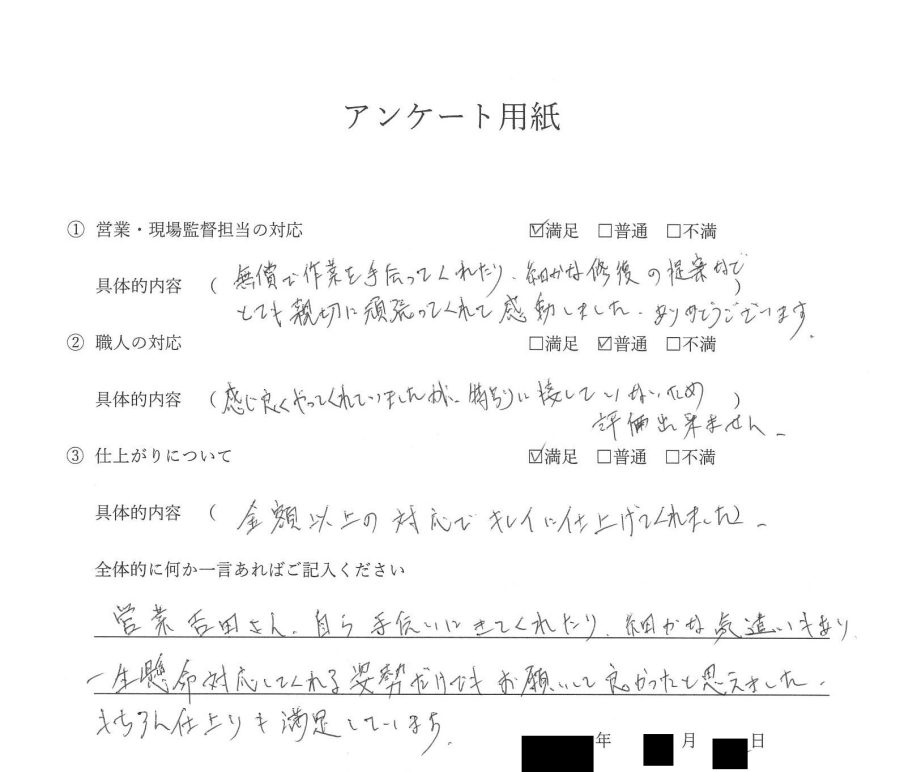 アンケート用紙
① 営業・現場監督担当の対応 ☑満足 □普通 □不満
具体的内容 ( 無償で作業を手伝ってくれたり、細かな修復の提案などで )
とても親切に頑張ってくれて感動しました。ありがとうございます。
② 職人の対応 □満足 ☑普通 □不満
具体的内容 ( 感じ良くやってくれていましたが、特別に接していないため )
評価出来ません。
③ 仕上がりについて ☑満足 □普通 □不満
具体的内容 ( 金額以上の対応でキレイに仕上げてくれました )。
全体的に何か一言あればご記入ください
営業吉田さん、自ら手伝いにきてくれたり、細かな気遣いもあり、
一生懸命対応してくれる姿勢だけでもお願いして良かったと思えました。
もちろん仕上りも満足しています。
年 月 日